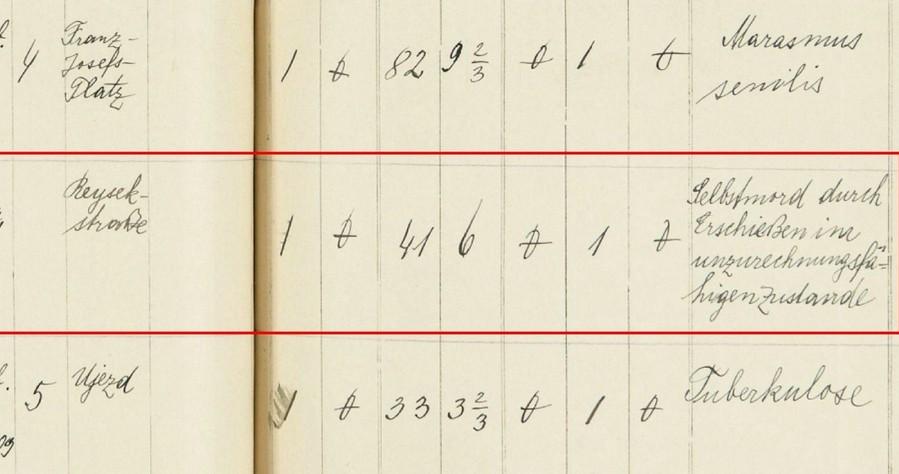 4 Franz-
Josefs-
Platz
1 0 82 9 2/3 0 1 0
Marasmus
senilis
Reysek-
straße
1 0 41 6 0 1 0
Selbstmord durch
Erschießen im
unzurechnungsfä-
higen Zustande
5 Ujezd
1 0 33 3 2/3 0 1 0
Tuberkulose